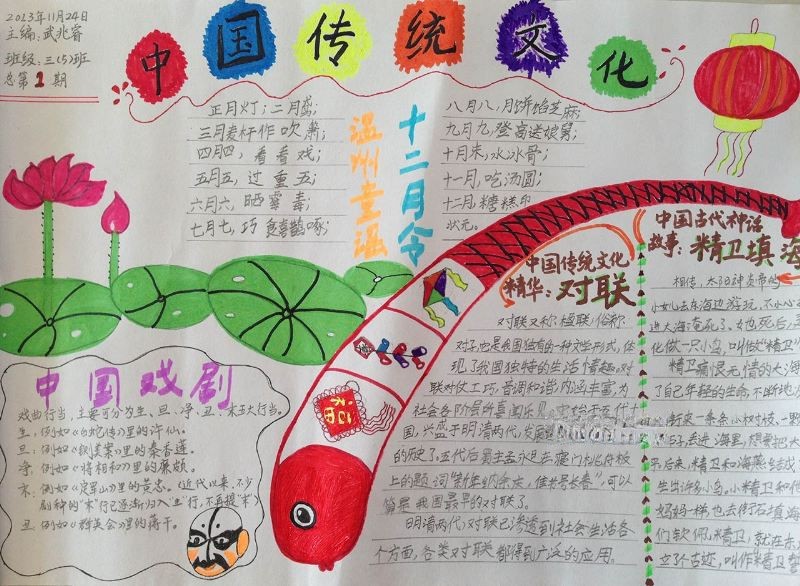 2013年11月24日
主编:武兆睿
班级:三(5)班
总第1期
中国传统文化
温州童谣
十二月令
正月灯;二月鸢;
三月麦杆作吹箫;
四月四,看看戏;
五月五,过重五;
六月六,晒霉毒;
七月七,巧食喜鹊啄;
八月八,月饼馅芝麻;
九月九,登高送娘舅;
十月末,水冰骨;
十一月,吃汤圆;
十二月,糖糕印
状元。
中国戏剧
戏曲行当,主要可分为生、旦、净、丑、末五大行当。
生,例如《白蛇传》里的许仙。
旦:例如《铡美案》里的秦香莲。
净,例如《将相和》里的廉颇。
末:例如《定军山》里的黄忠。(近代以来,不少
剧种的"末"行已逐渐归入"生"行,不再提"末")
丑,例如《群英会》里的蒋干。
中国传统文化
精华:对联
对联又称楹联,俗称
对子,它是我国独有的一种文学形式,体
现了我国独特的生活情趣。对
联对仗工巧,音调和谐,内涵丰富,为
社会各阶层所喜闻乐见。
国,兴盛于明清两代,发展
的历史了。五代后蜀主孟永旦在寝门桃符板
上的题词"新年纳余庆,佳节号长春",可以
算是我国最早的对联了。
明清两代,对联已渗透到社会生活各
个方面,各类对联都得到广泛的应用。
中国古代神话
故事:精卫填海
相传,太阳神炎帝的
小女儿去东海边游玩,不小心
进大海淹死了。她死后,
化做一只小鸟,叫做"精卫"
精卫痛恨无情的大海
了自己年轻的生命,不断地
衔来一条条小树枝、一颗
石子,丢进海里,想要把大
平后来,精卫和海燕结成
生出许多小鸟。小精卫和他
妈妈一样,也去衔石填海
们钦佩精卫,就在东
立了个古迹,叫作"精卫誓
福